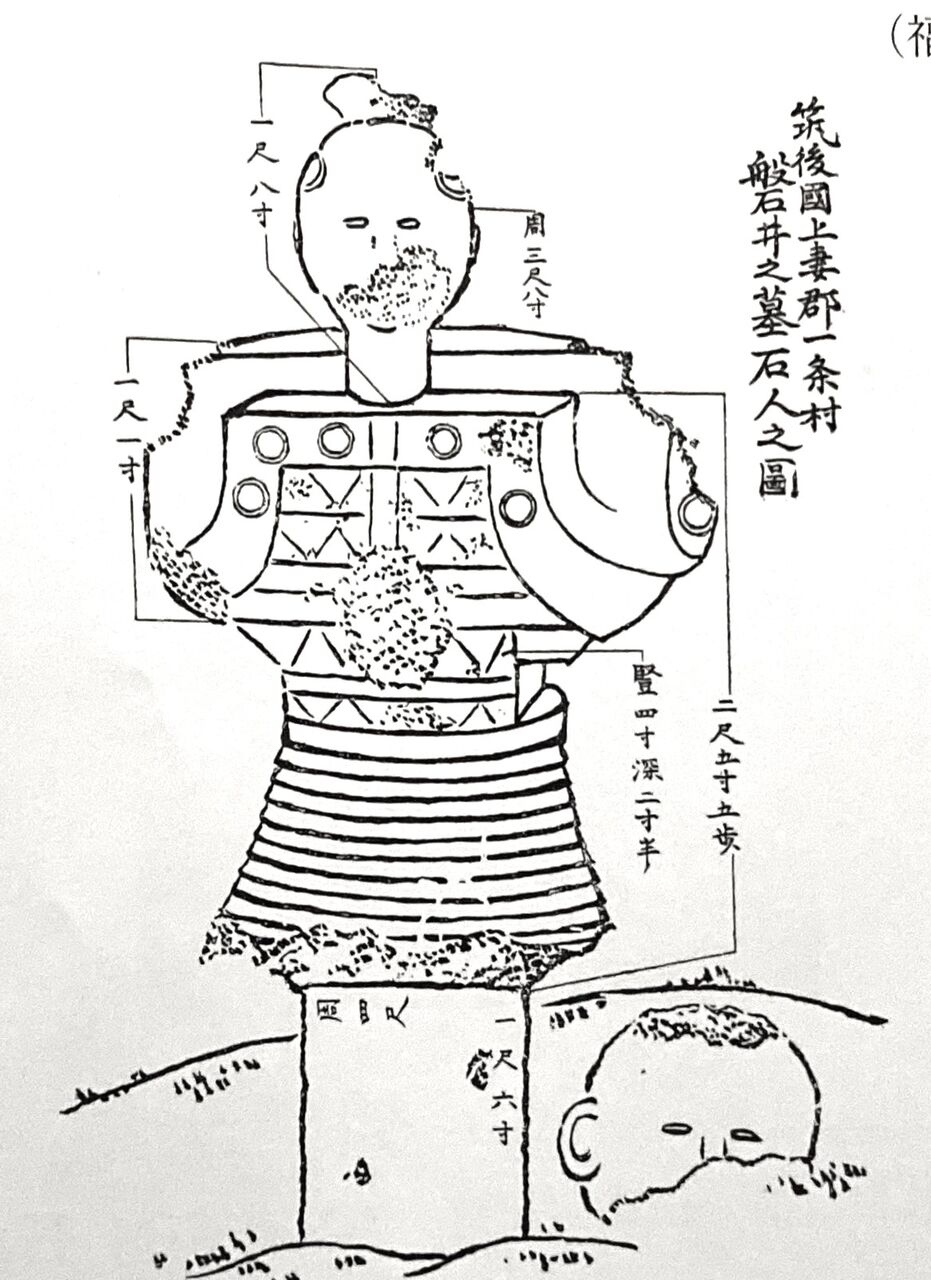 (福
筑後國上妻郡一条村
般石井之墓石人之圖
一尺八寸
周三尺八寸
一尺一寸
二尺五寸五歩
豎四寸深二寸半
周四尺
一尺六寸